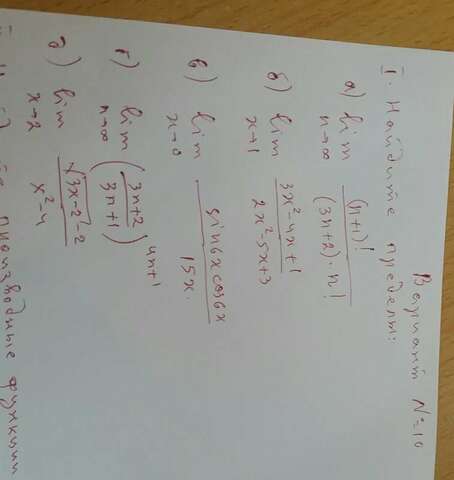 Вариант №10
I. Найдите пределы:
а) lim n→∞ (n+1)! / ((3n+2)·n!)
б) lim x→1 (3x²-4x+1) / (2x²-5x+3)
в) lim x→0 sin6x cos6x / 15x
г) lim n→∞ ((3n+2)/(3n+1))^(4n+1)
д) lim x→2 (√(3x-2) -2) / (x²-4)
производные функции